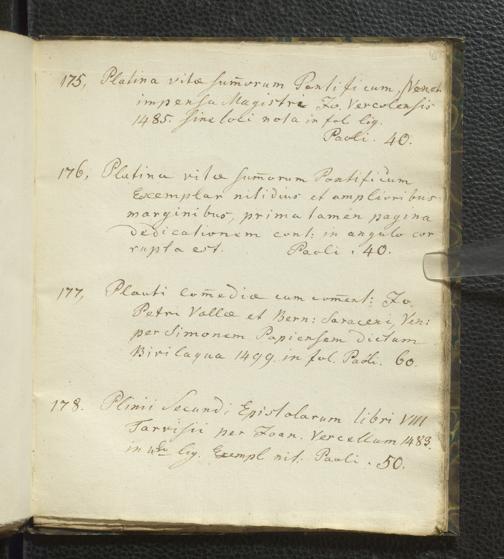 175, Platina vitæ sum̄orum Pontificum, Venet
impensa Magistri Jo. Vercelensis
1485. sine loci nota in fol. lig.
Paoli. 40.
176, Platina vitæ sum̄orum Pontificum
Exemplar nitidius et amplioribus
marginibus, prima tamen pagina
dedicationem cont: in angulo cor
rupta est. Paoli. 40.
177, Plauti Com̄ediæ cum com̄ent: Jo.
Petri Vallæ et Bern: Saraceni, Ven:
per Simonem Papiensem dictum
Bivilaqua 1499. in fol. Paoli. 60.
178. Plinii Secundi Epistolarum libri VIII
Tarvisii per Joan. Vercellum 1483.
in 4to lig. Exempl nit. Paoli. 50.